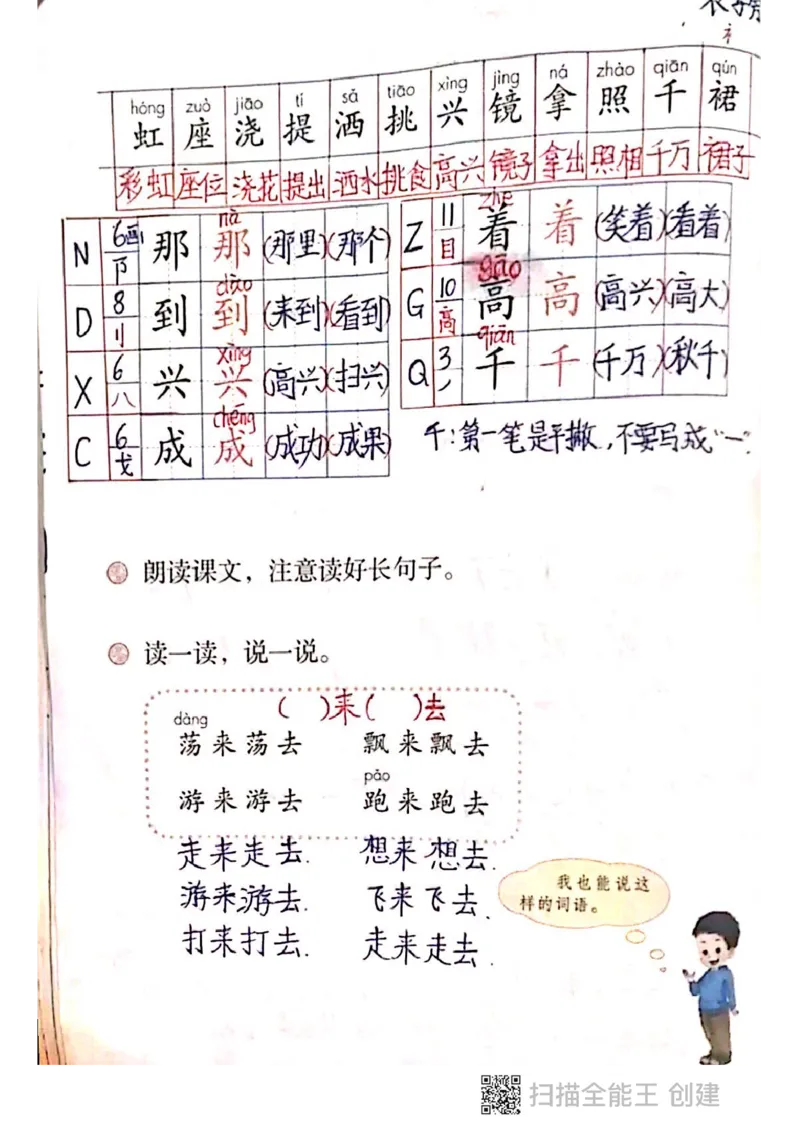 衤
hóng zuò jiāo tí sǎ tiāo xìng jìng ná zhào qiān qún
虹 座 浇 提 洒 挑 兴 镜 拿 照 千 裙
彩虹 座位 浇花 提出 洒水 挑食 高兴 镜子 拿出 照相 千万 裙子
nà
N 6画 阝 那 那 (那里)(那个)
dào
D 8 刂 到 到 (来到)(看到)
xìng
X 6 八 兴 兴 (高兴)(扫兴)
chéng
C 6 戈 成 成 (成功)(成果)
zhe
Z 11 目 着 着 (笑着)(看着)
gāo
G 10 高 高 高 (高兴)(高大)
qiān
Q 3 丿 千 千 (千万)(秋千)
千:第一笔是平撇,不要写成"一".
朗读课文,注意读好长句子。
读一读,说一说。
( )来( )去
dàng
荡来荡去 飘来飘去
pǎo
游来游去 跑来跑去
走来走去. 想来想去.
游来游去. 飞来飞去.
打来打去. 走来走去.
我也能说这
样的词语。
扫描全能王 创建